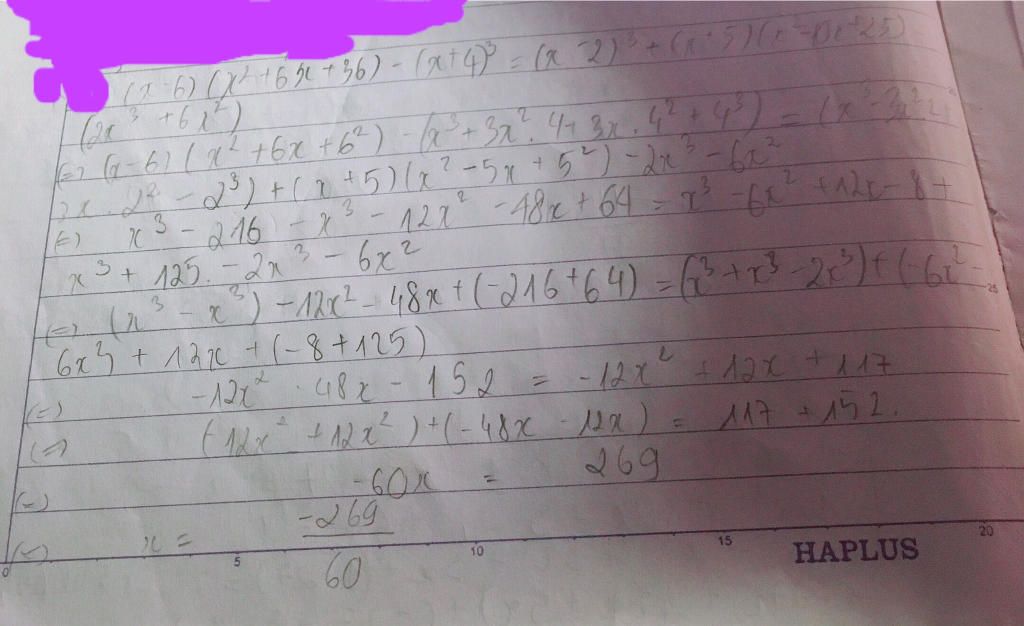 (x-6)(x²+6x+36) - (x+4)³ = (x-2)³ + (x+5)(x²-5x+25)
(2x³ +6x²)
(=) (x-6)(x²+6x+6²) - (x³+3x².4+3x.4²+4³) = (x³-3x².2+
3x.2²-2³)+(x+5)(x²-5x+5²)-2x³-6x²
(=) x³-216-x³-12x²-48x+64=x³-6x²+12x-8+
x³+125.-2x³-6x²
(=) (x³-x³)-12x²-48x+(-216+64)=(x³+x³-2x³)+(-6x²-
6x²)+12x+(-8+125)
(=) -12x² - 48x - 152 = -12x² + 12x + 117
(=) (12x²+12x²)+(-48x-12x) = 117+152.
(=) -60x = 269
(=) x = -269
60
0 5 10 15 HAPLUS 20
25